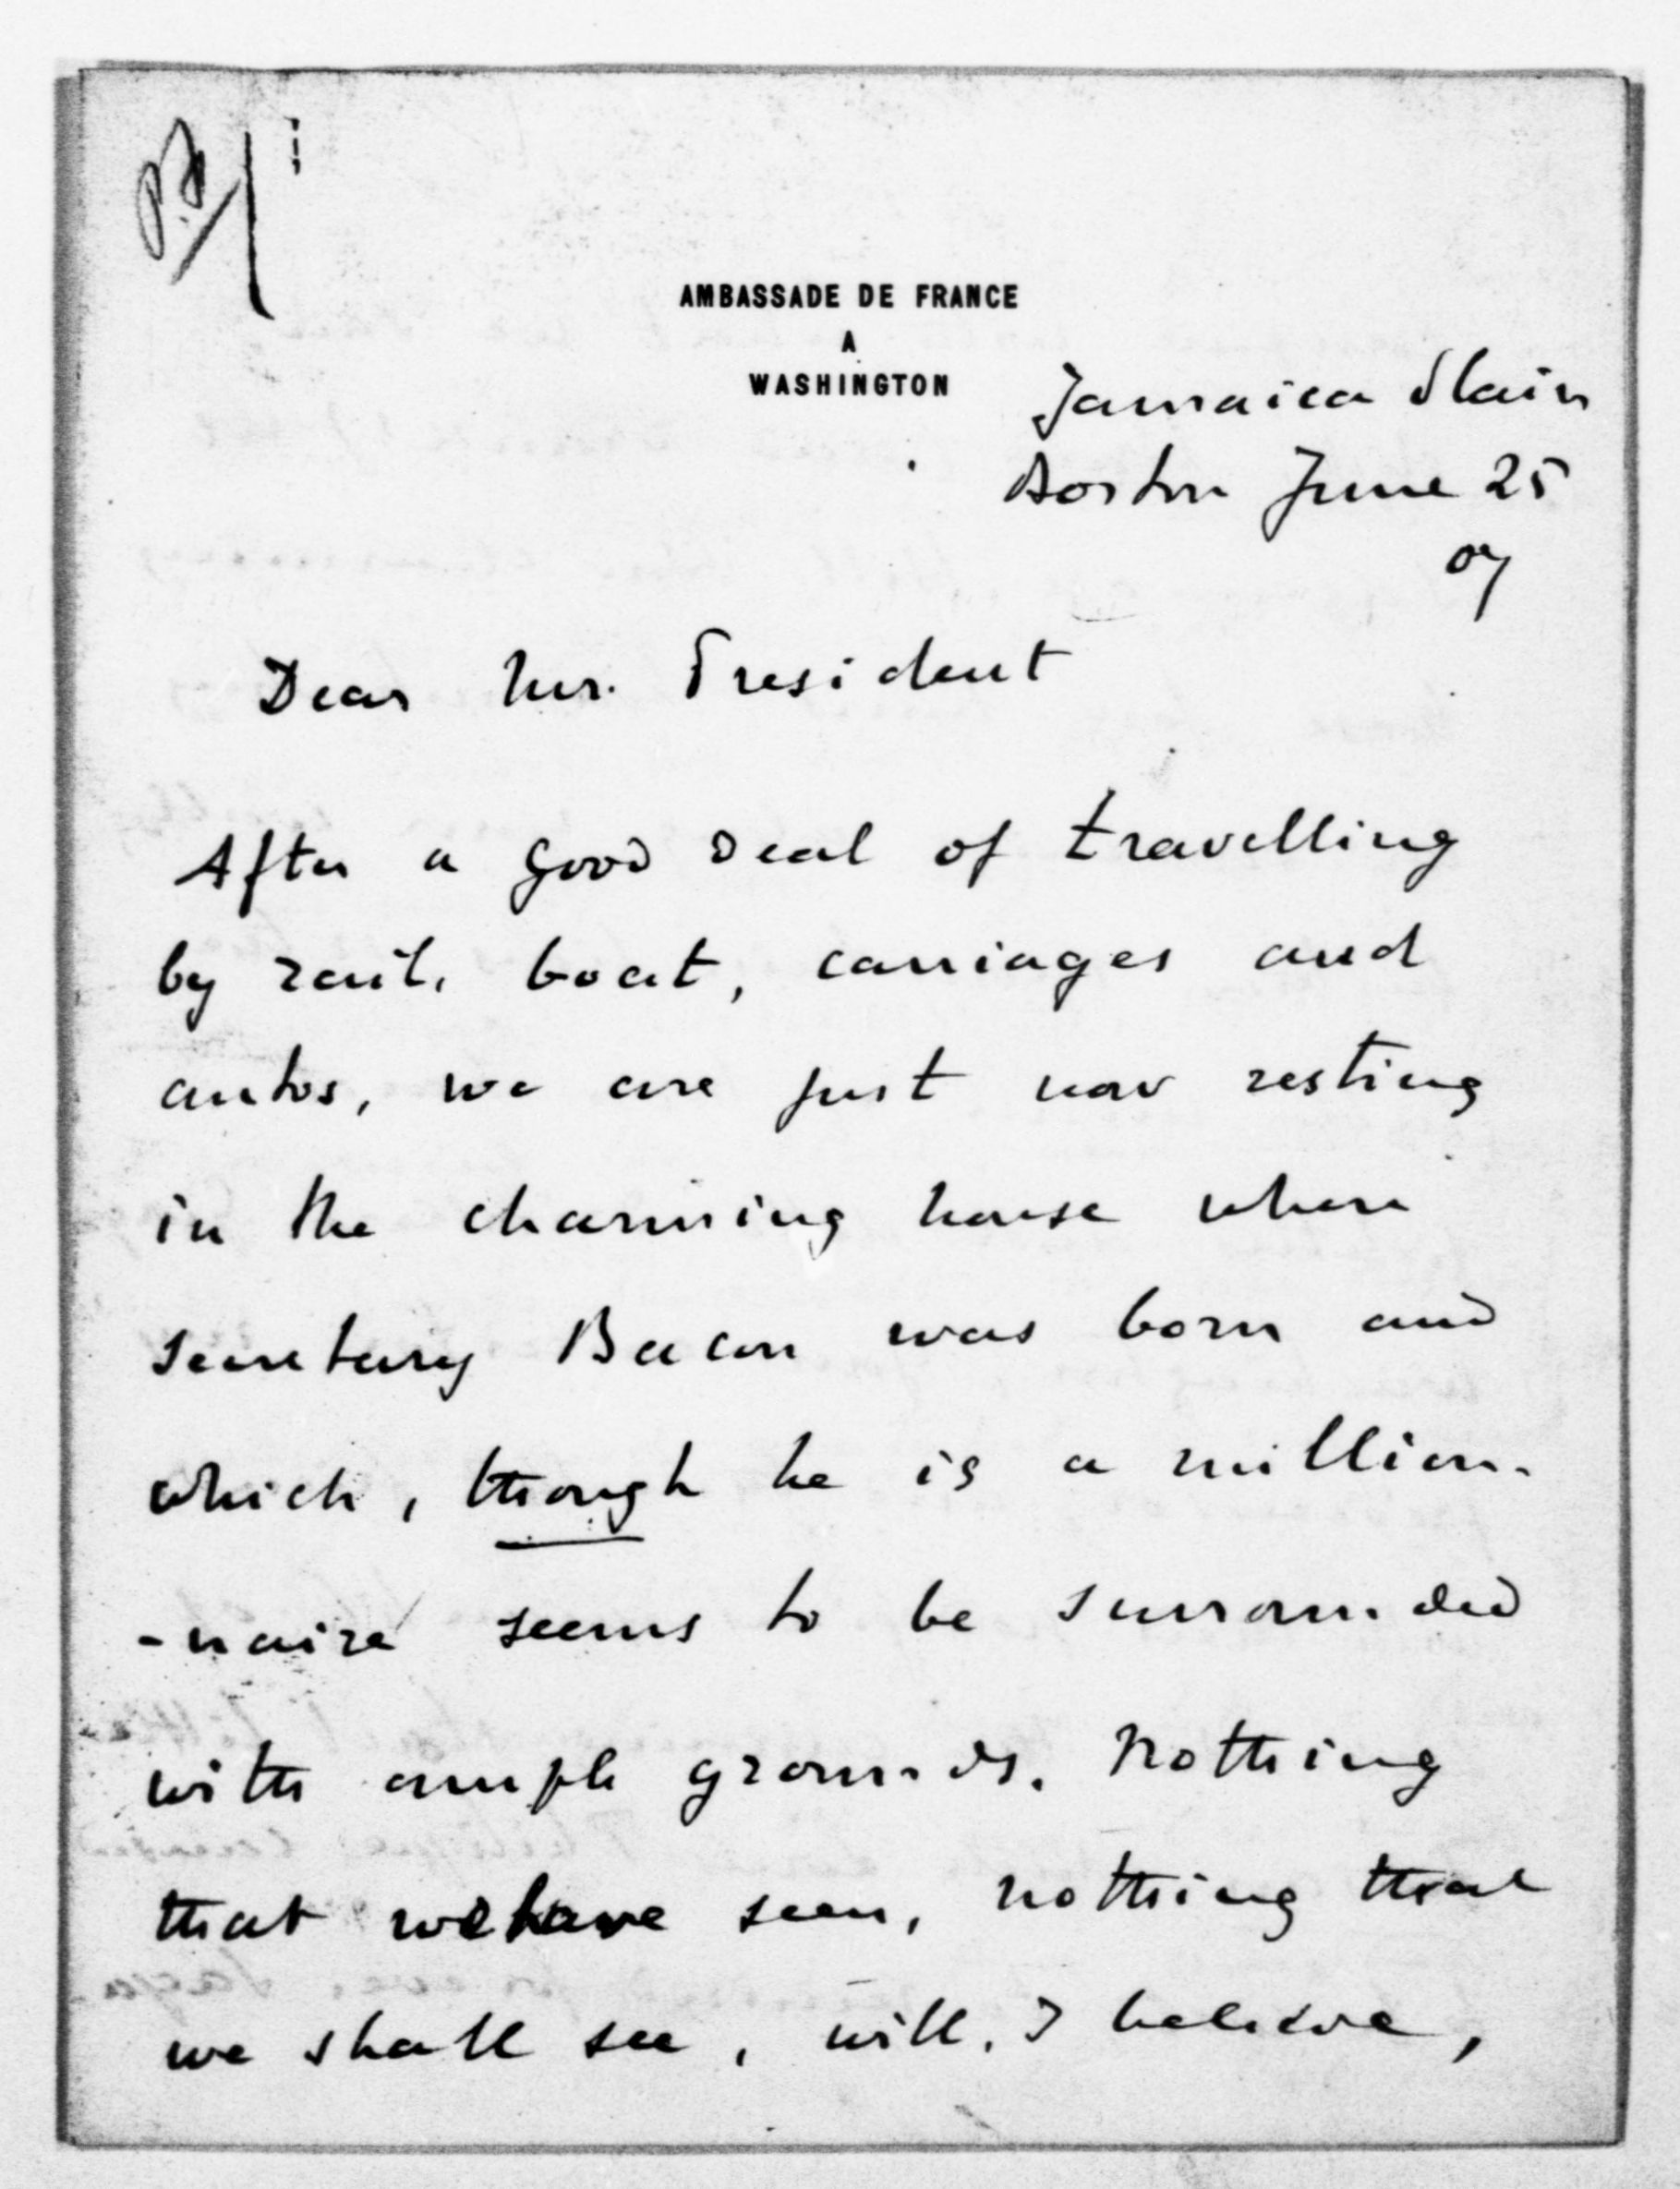 P.F
AMBASSADE DE FRANCE
A
WASHINGTON
Jamaica Plain
Boston June 25
07
Dear Mr. President
After a good deal of travelling
by rail, boat, carriages and
autos, we are just now resting
in the charming house where
secretary Bacon was born and
which, though he is a million-
-naire seems to be surrounded
with ample grounds. Nothing
that we have seen, nothing that
we shall see, will, I believe,